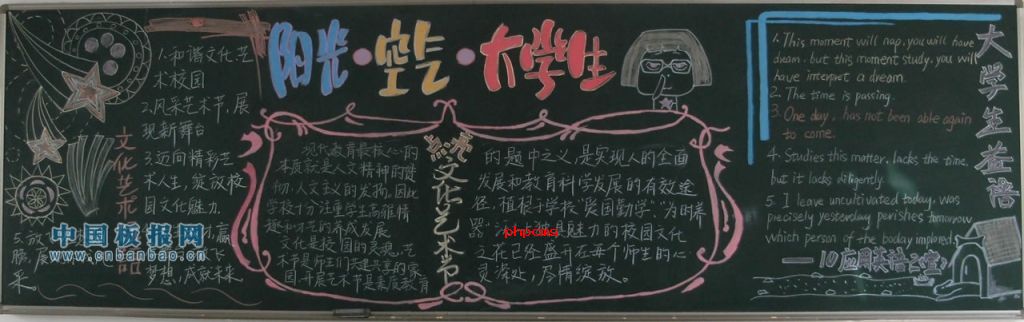 阳光·空气·大学生
1.和谐文化,艺
术校园
2.风采艺术节,展
现新舞台
3.迈向精彩艺
术人生,绽放校
园文化魅力.
5.放
胜,展
采.
梦想,成就未来
文化艺术
中国板报网
www.cnbanbao.cn
现代教育最核心的
本质就是人文精神的建
彻,人文主义的发扬。因此
学校十分注重学生高雅情
趣和才艺的养成发展.
文化是校园的灵魂,艺
术节是师生们共建共享的家
园.开展艺术节是素质教育
点亮文化艺术节
的题中之义,是实现人的全面
发展和教育科学发展的有效途
径.植根于学校"爱国勤学"."为时养
器"
phpcmsj
魅力的校园文化
之花已经盛开在每个师生的心
灵深处,尽情绽放。
1. This moment will nap, you will have
dream, but this moment study, you will
have interpret a dream.
2. The time is passing.
3. One day, has not been able again
to come.
4. Studies this matter, lacks the time,
but it lacks diligently
5. I leave uncultivated today, was
precisely yesterday perishes tomorrow
which person of the boday implored.
——10应用英语2班
大学生荟语